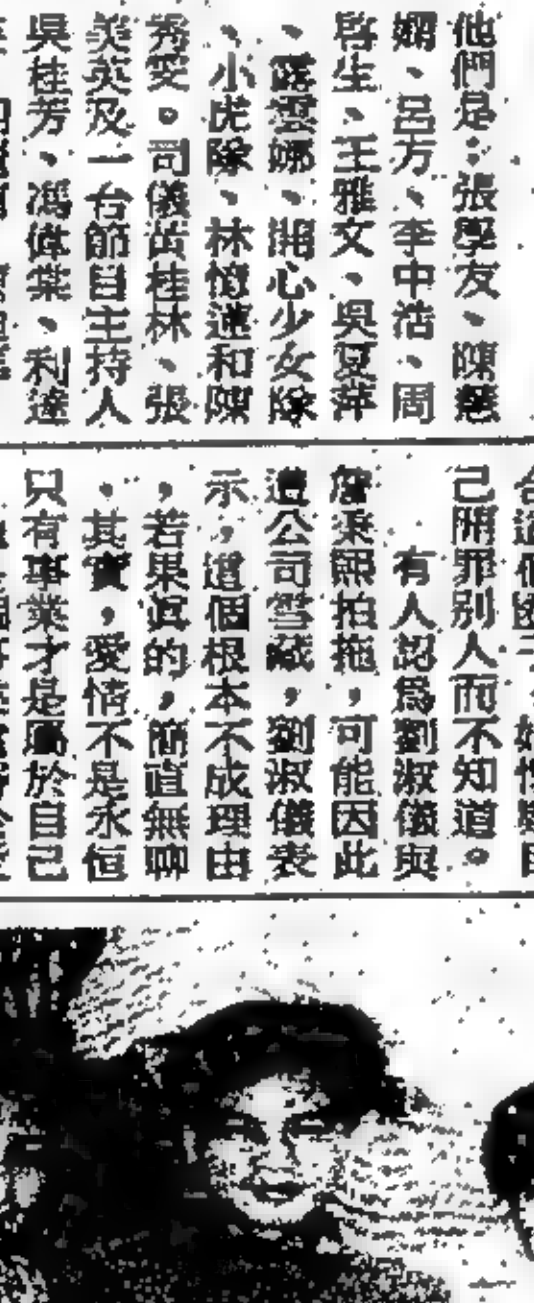 他們是：張學友、陳慧
嫻、呂方、李中浩、周
啓生、王雅文、吳夏萍
、露雲娜、開心少女隊
、小虎隊、林憶蓮和陳
秀雯。司儀黃桂林、張
美英及一台節目主持人
吳桂芳、馮偉棠、利達
己開罪別人而不知道。
有人認爲劉淑儀與
詹秉熙拍拖，可能因此
遭公司雪藏，劉淑儀表
示，這個根本不成理由
，若果眞的，簡直無聊
。其實，愛情不是永恒
只有事業才是屬於自己